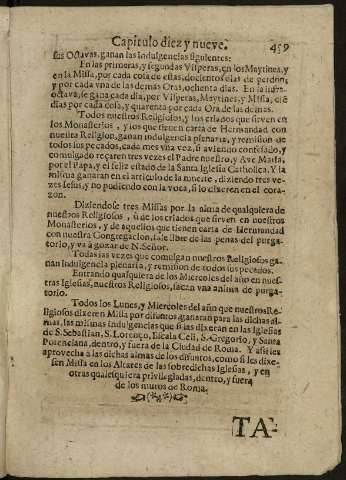 Capitulo diez y nueve. 459
sus Octavas, ganan las Indulgencias siguientes:
En las primeras, y segundas Visperas, en los Maytines, y
en la Missa, por cada cosa de estas, docientos dias de perdon,
y por cada vna de las demàs Oras, ochenta dias. En la infra-
octava, se gana cada dia, por Visperas, Maytines, y Missa, cié
dias por cada cosa, y quarenta por cada Ora de las demàs.
Todos nuestros Religiosos, y los criados que sirven en
los Monasterios, y los que tienen carta de Hermandad con
nuestra Religion, ganan indulgencia plenaria, y remission de
todos sus pecados, cada mes vna vez, si aviendo confessado, y
comulgado reçaren tres vezes el Padre nuestro, y Ave Maria,
por el Papa, y el feliz estado de la Santa Iglesia Catholica. Y la
misma ganaran en el articulo de la muerte, diziendo tres ve-
zes Iesus, y no pudiendo con la voca, si lo dixeren en el cora-
zon.
Diziendose tres Missas por la alma de qualquiera de
nuestros Religiosos, ù de los criados que sirven en nuestros
Monasterios, y de aquellos que tienen carta de Hermandad
con nuestra Congregacion, sale libre de las penas del purga-
torio, y và à gozar de N. Señor.
Todas las vezes que comulgan nuestros Religiosos ga-
nan indulgencia plenaria, y remission de todos sus pecados.
Entrando qualquiera de los Miercoles del año en nues-
tras Iglesias, nuestros Religiosos, sacan vna anima de purga-
torio.
Todos los Lunes, y Miercoles del año que nuestros Re-
ligiosos dixeren Missa por difuntos, ganaràn para las dichas al-
mas, las mismas indulgencias que si las dixeran en las Iglesias
de S. Sebastian, S. Lorenço, Escala Celi, S. Gregorio, y Santa
Potenciana, dentro, y fuera de la Ciudad de Roma. Y assi les
aprovecha à las dichas almas de los difuntos, como si les dixes-
sen Missa en los Altares de las sobredichas Iglesias, y en
otras qualesquiera privilegiadas, dentro, y fuera
de los muros de Roma.
TA-